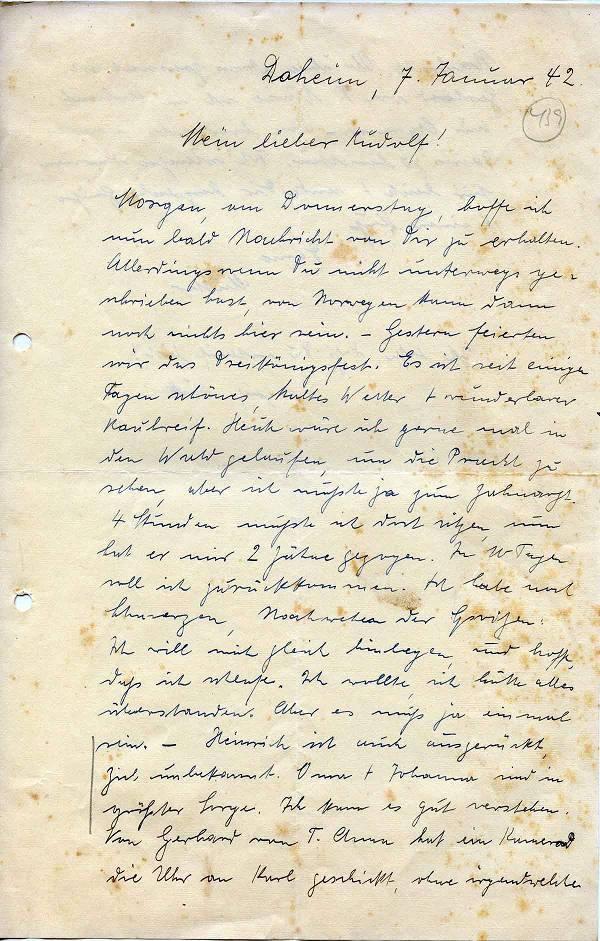 Daheim, 7. Januar 42.
439
Mein lieber Rudolf!
Morgen, am Donnerstag, hoffe ich
nun bald Nachricht von Dir zu erhalten.
Allerdings wenn Du nicht unterwegs ge-
schrieben hast, von Norwegen kann dann
noch nichts hier sein. – Gestern feierten
wir das Dreikönigsfest. Es ist seit einigen
Tagen schönes, kaltes Wetter + wunderbarer
Rauhreif. Heute wäre ich gerne mal in
den Wald gelaufen, um die Pracht zu
sehen, aber ich mußte ja zum Zahnarzt
4 Stunden mußte ich dort sitzen, nun
hat er mir 2 Zähne gezogen. In 10 Tagen
soll ich zurückkommen. Ich habe noch
Schmerzen, Nachwehen der Spritzen.
Ich will mich gleich hinlegen, und hoffe,
daß ich schlafe. Ich wollte, ich hätte alles
überstanden. Aber es muß ja einmal
sein. – Heinrich ist auch ausgerückt,
Ziel unbekannt. Oma + Johanna sind in
größter Sorge. Ich kann es gut verstehen.
Von Gerhard von T. Anna hat ein Kamerad
die Uhr an Karl geschickt, ohne irgendwelche